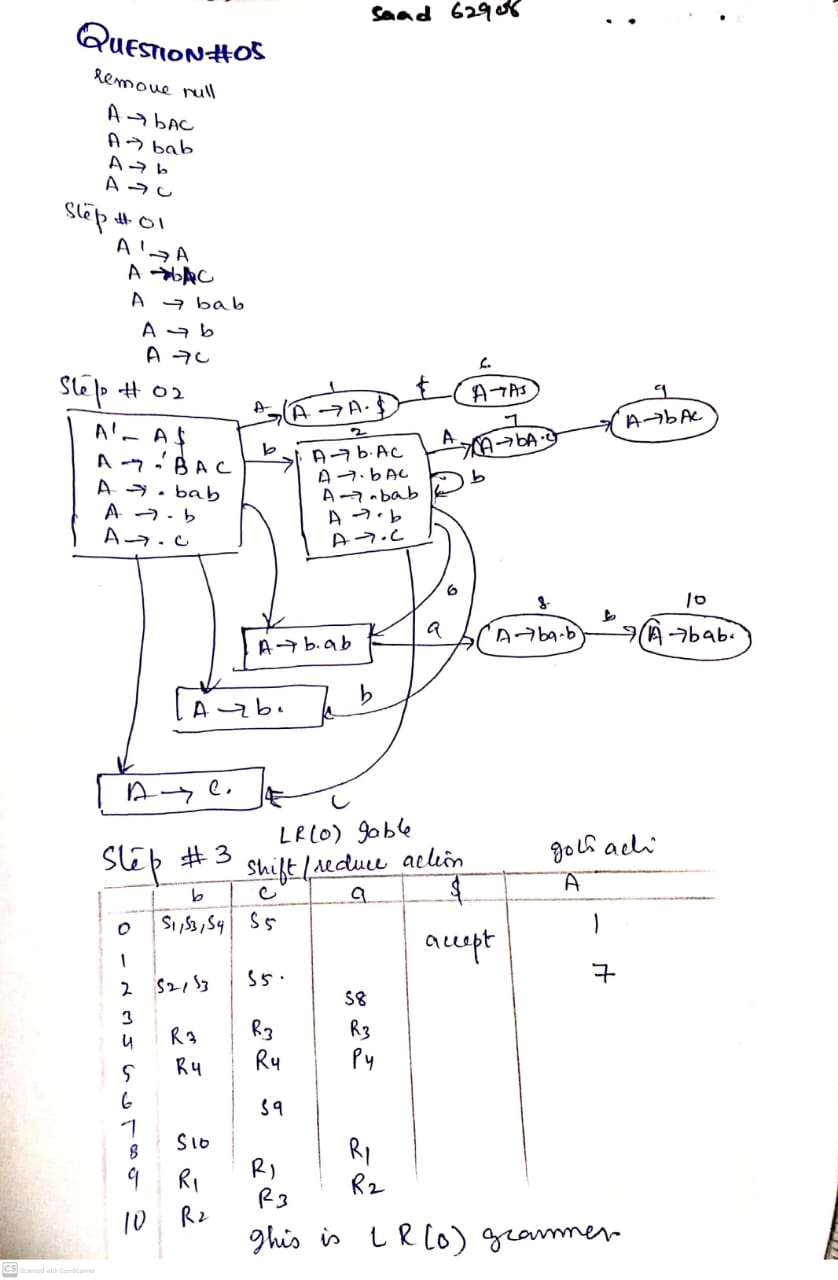 Saad 62908
QUESTION#05
Remove null
A → bAC
A → bab
A → b
A → c
Step # 01
A' → A
A → bAC
A → bab
A → b
A → c
Step # 02
A' – A$
A → .BAC
A → .bab
A → .b
A → .c
A
1
A → A.$
$
6.
A → A$
b
2
A → b.AC
A → .bAC
A → .bab
A → .b
A → .C
A
7
A → bA.c
9
A → bAc
b
6
A → b.ab
a
8
A → ba.b
b
10
A → bab.
A → b.
b
A → c.
c
Step # 3
LR(0) Table
Shift/reduce action
goto acti
b c a $ A
0 S1,S3,S4 S5 1
1 accept
2 S2,S3 S5. 7
3 S8
4 R3 R3 R3
5 R4 R4 R4
6
7 S9
8 S10
9 R1 R1 R1
10 R2 R3 R2
This is LR(0) grammer
CS Scanned with CamScanner